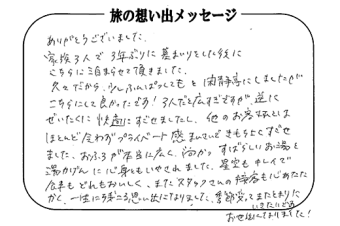 旅の想い出メッセージ
ありがとうございました。
家族3人で 3年ぶりに 墓まいりをした後に
こちらに泊まらせて頂きました。
久々だから、少しふんぱつしても と 閑静亭にしましたが
こちらにして良かったです！3人だと広すぎですが、逆に
ぜいたくに快適にすごせましたし、他のお客さんとは
ほとんど会わずプライベート感 まんてんできもちよくすごせ
ました。おふろが本当に広く、何かすばらしいお湯と
湯かげんに心身ともいやされました。星空もキレイで
食事も どれもおいしく、またスタッフさんの接客も心あたた
かく、一生にのこる思い出になりました。季節変えてまたとまりに
いきたいです
お世話になりました！